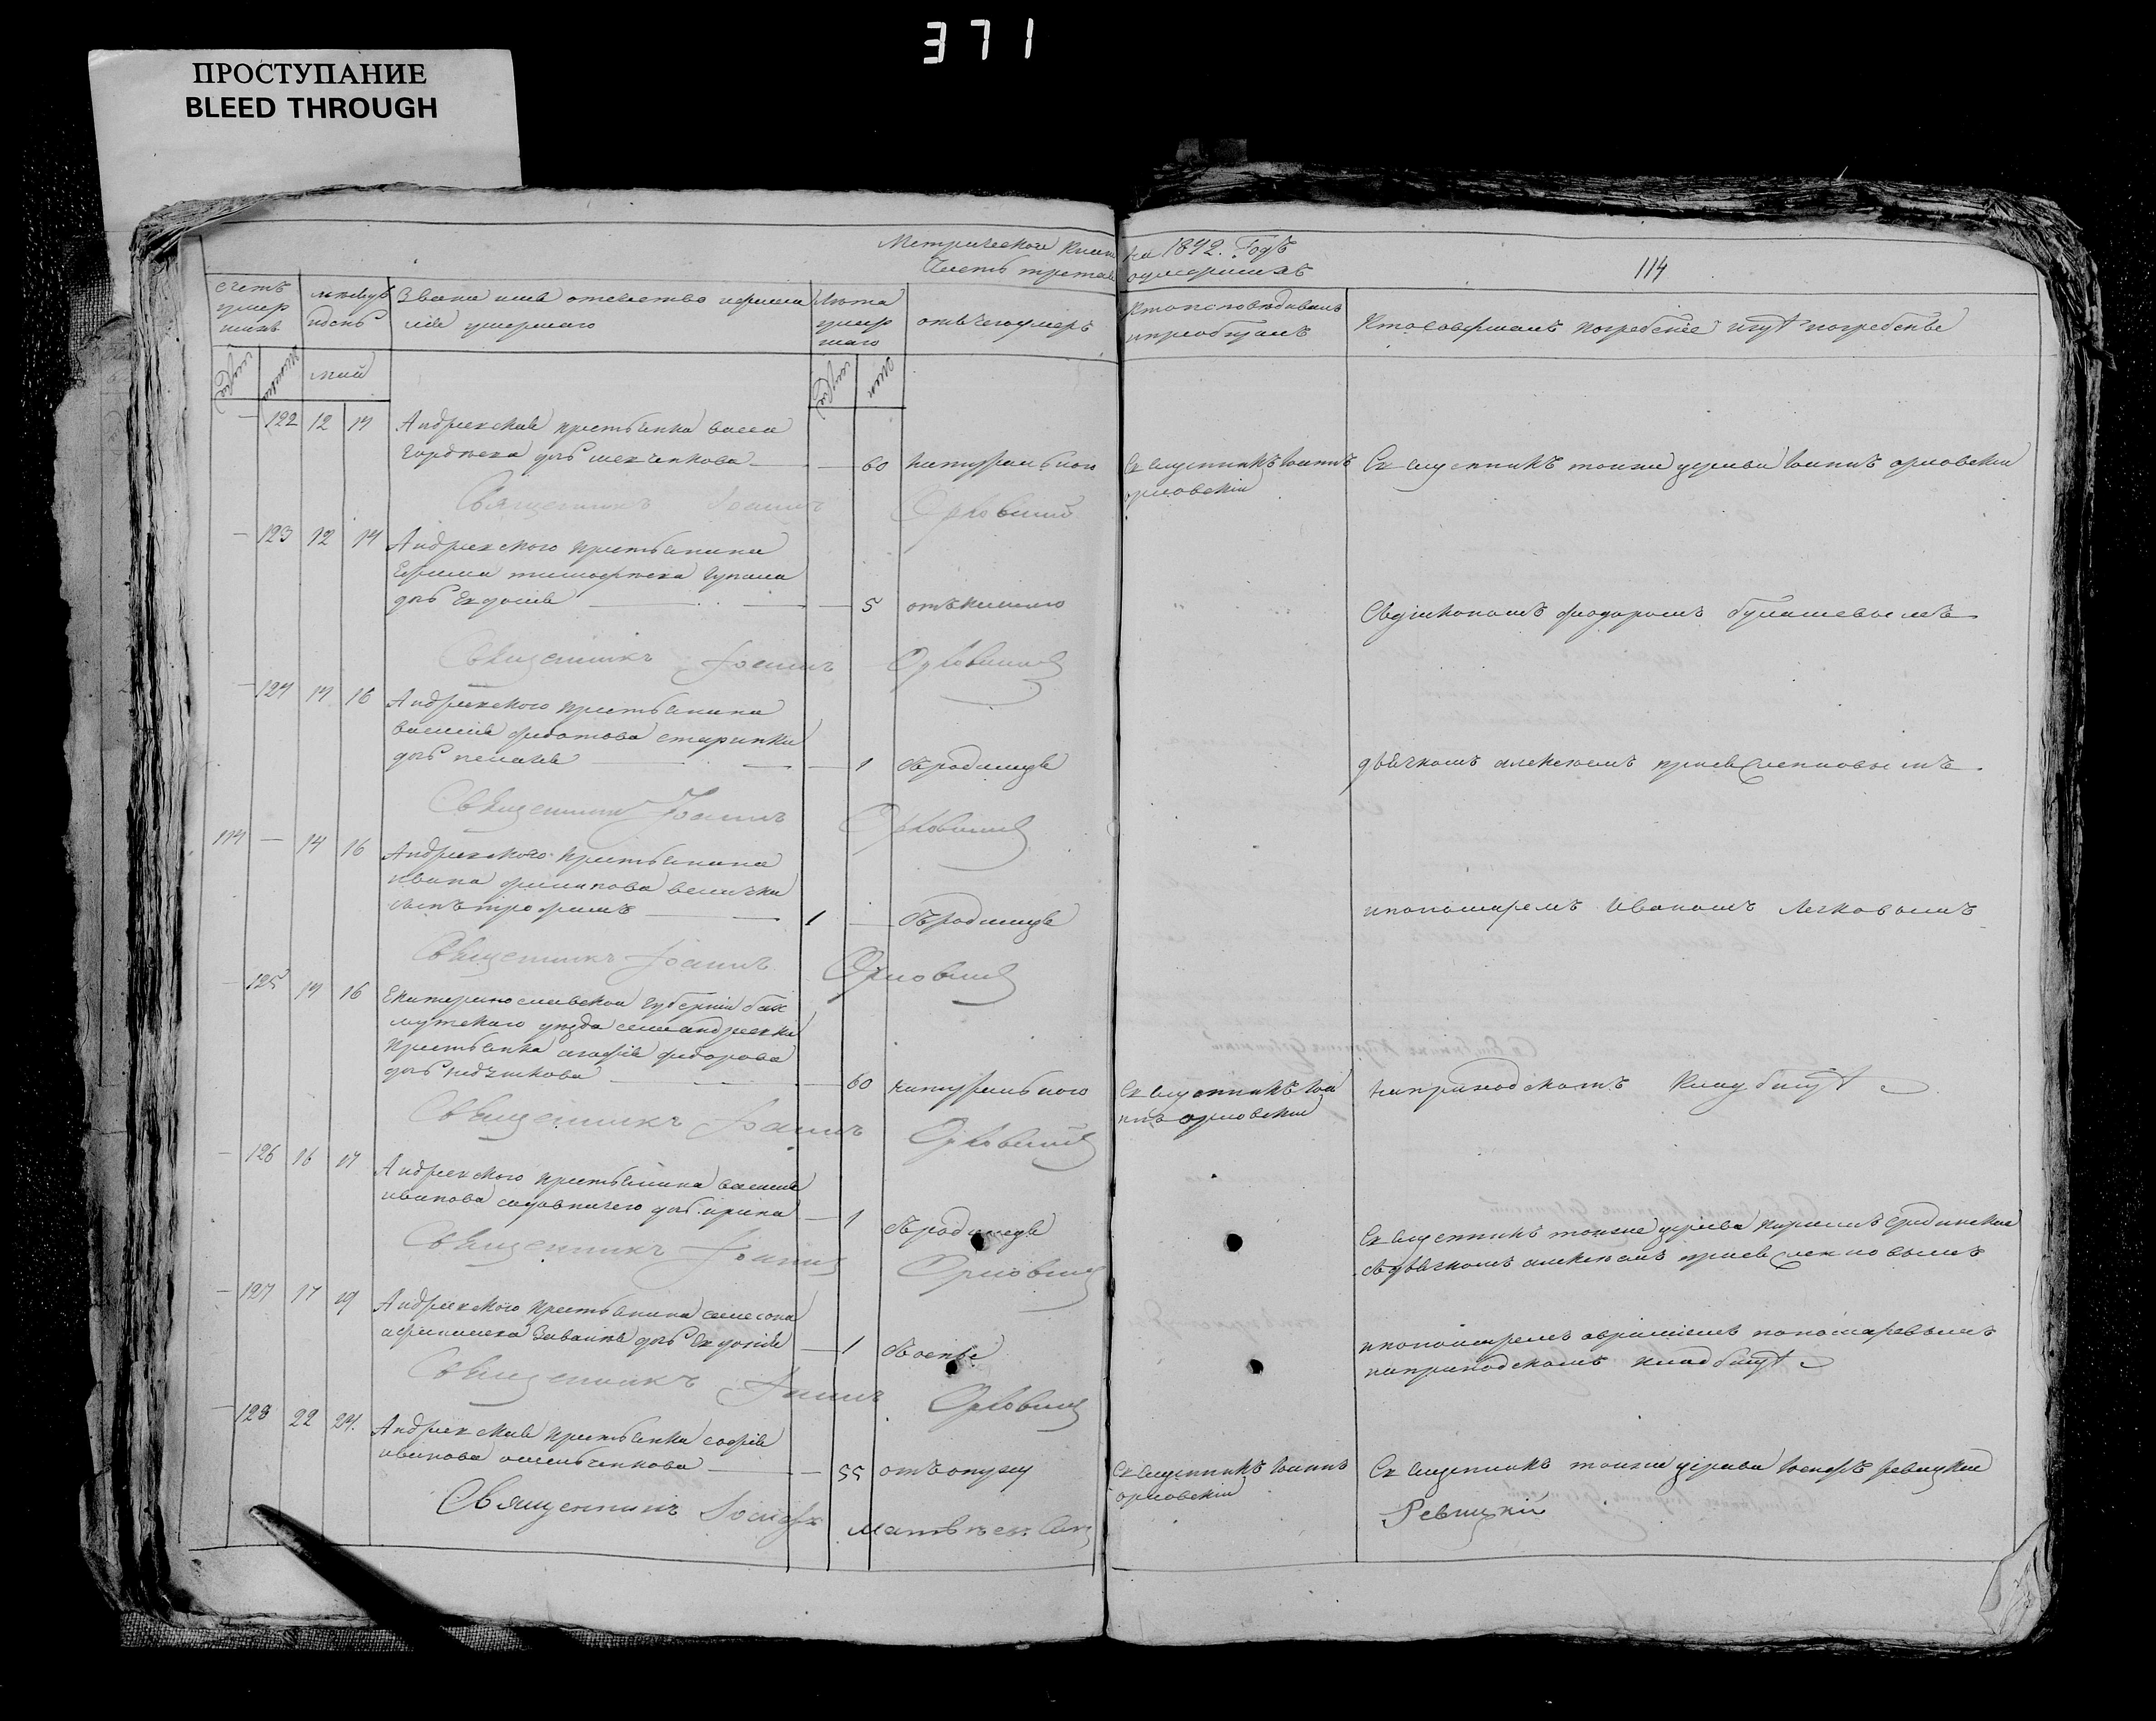 371
ПРОСТУПАНИЕ
BLEED THROUGH
Метрической книги на 1842. Годъ
Часть третья о умершихъ
114
счетъ умершихъ
мѣсяцъ и день
Званіе имя отечество и фамилія умершаго
Лѣта умершаго
отъ чего умеръ
Кто исповѣдывалъ и пріобщалъ
Кто совершалъ погребеніе и гдѣ погребены
май
122 12 14 Андреевская крестьянка васса
Гордѣева дочь шевченкова — 60 натурального
Священникъ Іоаннъ орловскій
Священникъ тоижъ церкви Іоаннъ орловскій
Священникъ Іоаннъ Орловскій
123 12 14 Андреевского крестьянина
Ефима тимофѣева
дочь Евдокія — 5 отъ кашлю
Съ діякономъ феодоромъ
Священникъ Іоаннъ Орловскій
124 14 16 Андреевского крестьянина
василія федотова старинки
дочь пелагія — 1 съ родимца
дьячкомъ алексѣемъ
Священникъ Іоаннъ Орловскій
114 — 14 16 Андреевского крестьянина
ивана филипова велички
сынъ трофимъ — 1 — съ родимца
и пономаремъ Иваномъ Легковымъ
Священникъ Іоаннъ Орловскій
125 14 16 Екатеринославской губерніи бах
мутскаго уѣзда села андреевки
крестьянка агафія федорова
дочь — 60 натурального
Священникъ Іоа
ннъ орловскій
на приходскомъ кладбищѣ
Священникъ Іоаннъ Орловскій
126 16 17 Андреевского крестьянина василія
иванова садовничего дочь ирина — 1 съ родимца
Священникъ тоижъ церкви
съ дьячкомъ алексѣемъ
Священникъ Іоаннъ Орловскій
127 17 19 Андреевского крестьянина самсона
дочь Евдокія — 1 съ оспы
и пономаремъ авраміемъ пономаревымъ
на приходскомъ кладбищѣ
Священникъ Іоаннъ Орловскій
128 22 24. Андреевская крестьянка софія
иванова омельченкова — 55 отъ опуху
Священникъ Іоаннъ
орловскій
Священникъ тоижъ церкви Іосифъ ревицкій
Ревицкій
Священникъ Іосифъ